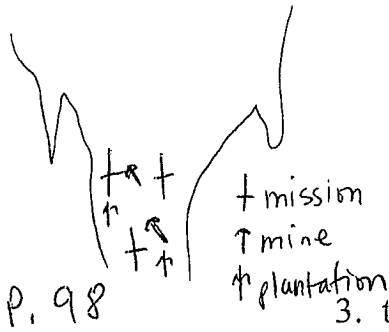 † mission
↑ mine
⇞ plantation
P. 98
3. t